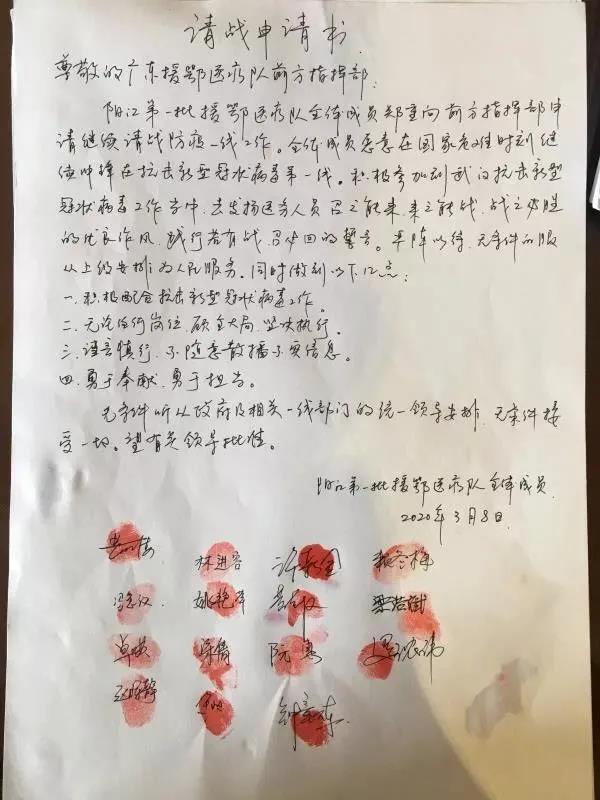 请战申请书
尊敬的广东援鄂医疗队前方指挥部：
阳江第一批援鄂医疗队全体成员郑重向前方指挥部申
请继续请战防疫一线工作。全体成员愿意在国家危难时刻继
续冲锋在抗击新型冠状病毒第一线。积极参加到武汉抗击新型
冠状病毒工作当中，去发扬医务人员召之能来，来之能战，战之必胜
的优良作风，践行若有战召必回的誓言。严阵以待，无条件的服
从上级安排，为人民服务。同时做到以下几点：
一.积极配合抗击新型冠状病毒工作。
二.无论任何岗位，顾全大局，坚决执行。
三.谨言慎行，不随意散播不实信息。
四.勇于奉献，勇于担当。
无条件听从政府及相关一线部门的统一领导安排，无条件接
受一切。望有关领导批准。
阳江第一批援鄂医疗队全体成员
2020年3月8日.
林进容 张冬梅
姚艳萍
阮惠